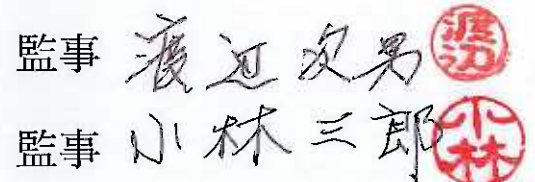 監事 渡辺次男 渡辺
監事 小林三郎 小林